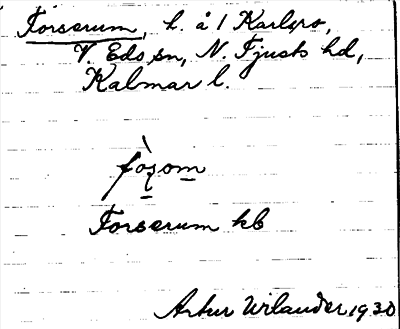 Forserum, l. å 1 Karlsro,
V. Eds sn, N. Tjusts hd,
Kalmar l.
fòs̱om̱
Forserum kb
Artur Wilander 1930